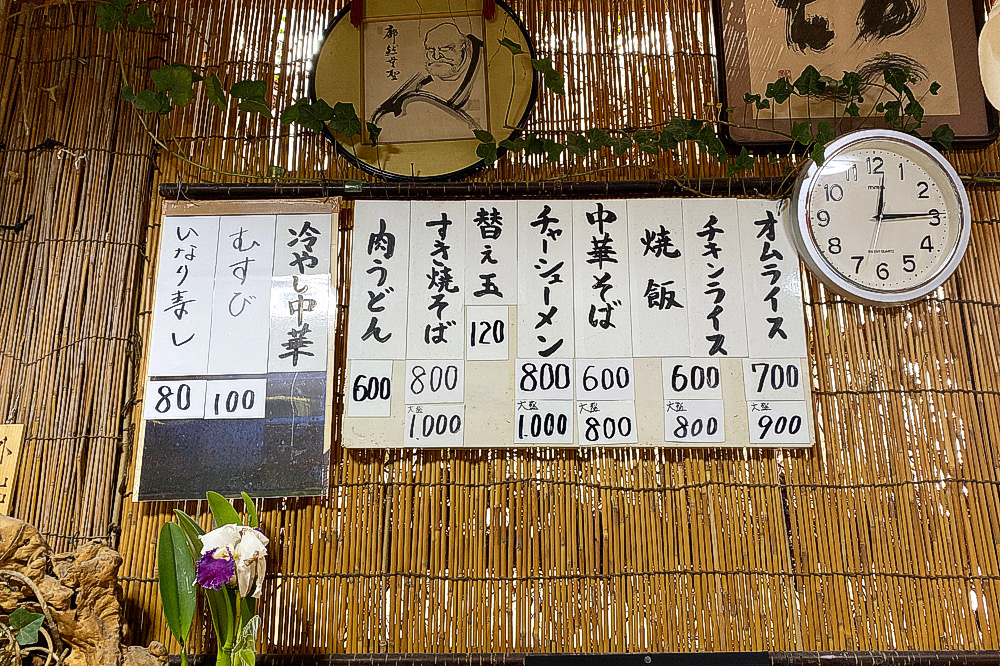 オムライス
700
大盛
900
チキンライス
600
大盛
800
焼飯
中華そば
600
大盛
800
チャーシューメン
800
大盛
1.000
替え玉
120
すき焼そば
800
大盛
1.000
肉うどん
600
冷やし中華
むすび
100
いなり寿し
80
12
1
2
3
4
5
6
7
8
9
10
11